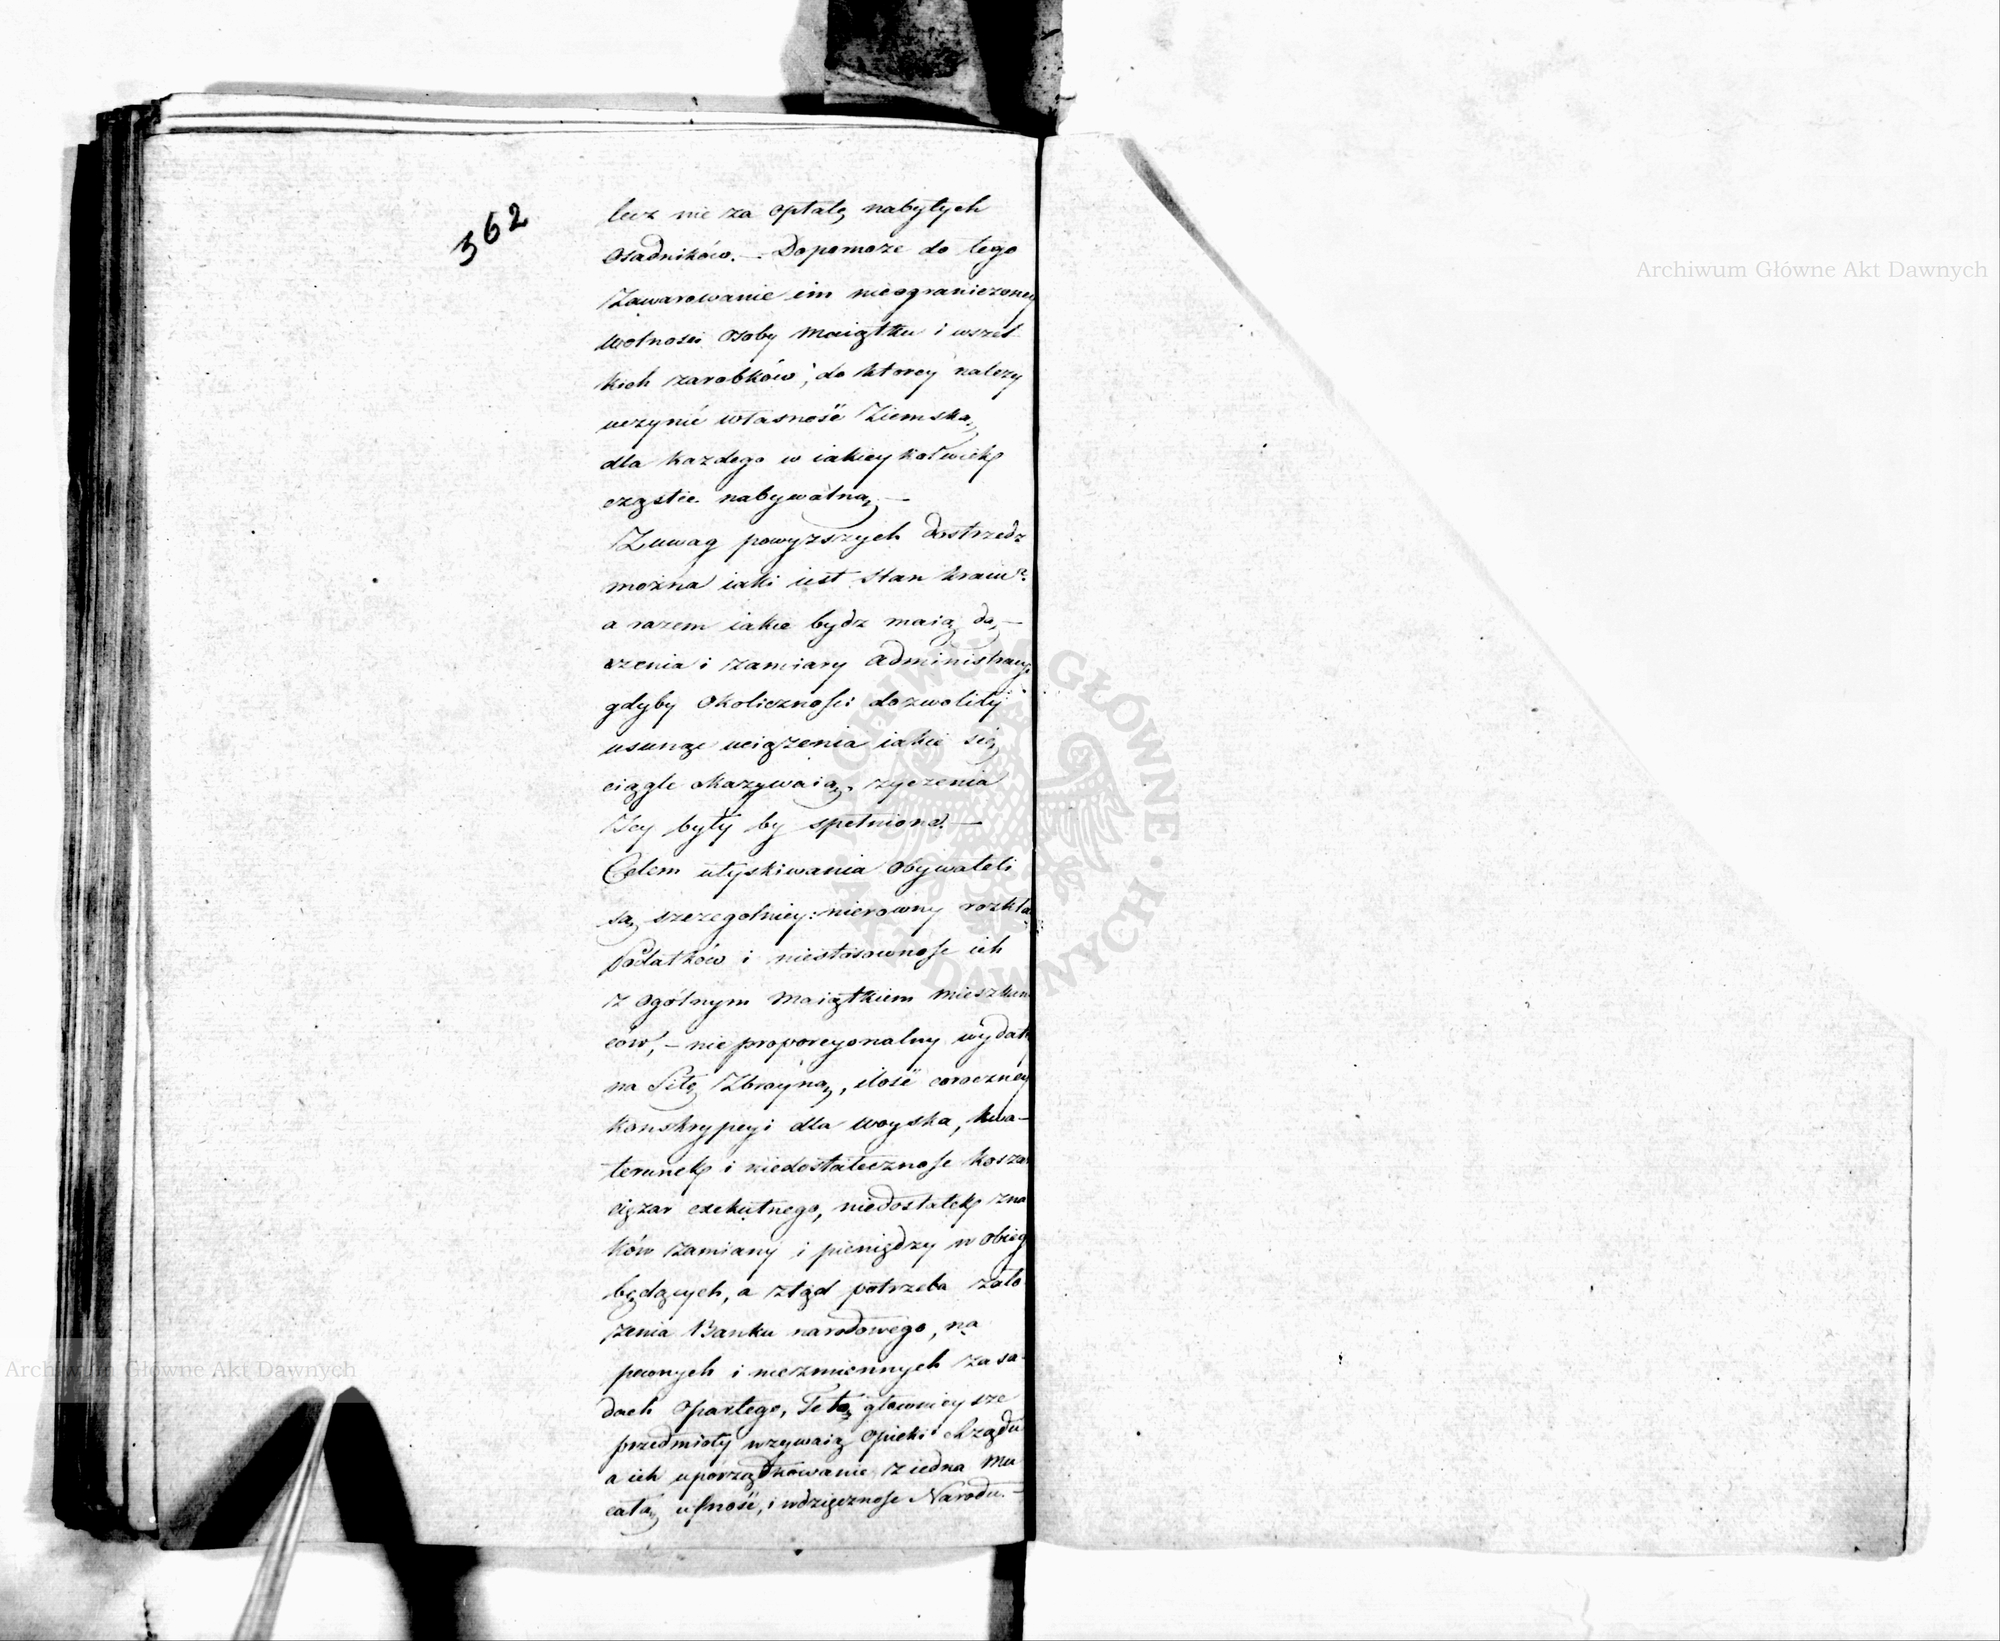 362
lecz nie za opłatę nabytych
osadników. — Dopomoże do tego
Zawarowanie im nieograniczoney
wolności osoby Maiątku i wszel-
kich zarobków, do ktorey należy
uczynić własność Ziemską,
dla każdego w iakiey kolwiek
cząstce nabywalną. —
Z uwag powyższych dostrzedz
można iaki iest stan kraiu?
a razem iakie bydz maią dą-
żenia i zamiary Administracyi
gdyby okoliczności dozwoliły
usunąć uciążenia iakie się
ciągle okazywaią, życzenia
Jey były by spełnione. —
Celem utyskiwania obywateli
są szczegolniey: nierowny rozkła
Podatków i niestosowność ich
z ogólnym Maiątkiem Mieszkań
ców, — nie proporcyonalny wydat
na Siłę Zbroyną, ilość coroczney
Konskrypcyi dla woyska, kwa-
terunek i niedostateczność koszar
ciężar exekutnego, niedostatek zna
ków zamiany i pieniędzy w obieg
będących, a ztąd potrzeba zało
żenia Banku narodowego, na
pewnych i niezmiennych zasa-
dach opartego, Te to głownieysze
przedmioty wzywaią opieki Rządu
a ich uporządkowanie ziedna Mu
całą ufność, i wdzięczność Narodu. —
Archiwum Główne Akt Dawnych
Archiwum Główne Akt Dawnych
ARCHIWUM GŁÓWNE AKT DAWNYCH